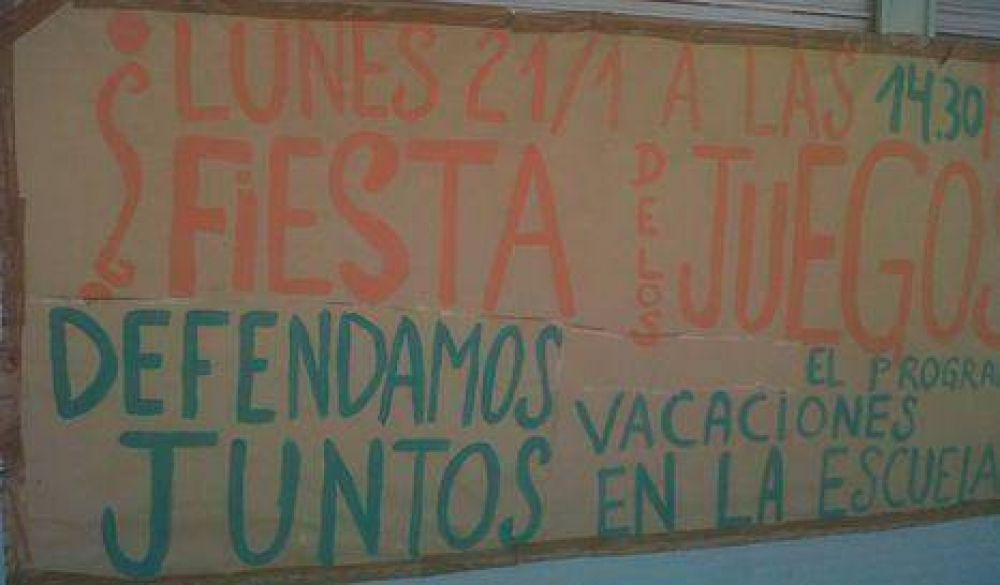 LUNES 21/1 A LAS 14.30
FiESTA DE LOS JUEGOS
DEFENDAMOS
JUNTOS
EL PROGRA
VACACiONES
EN LA ESCUELA